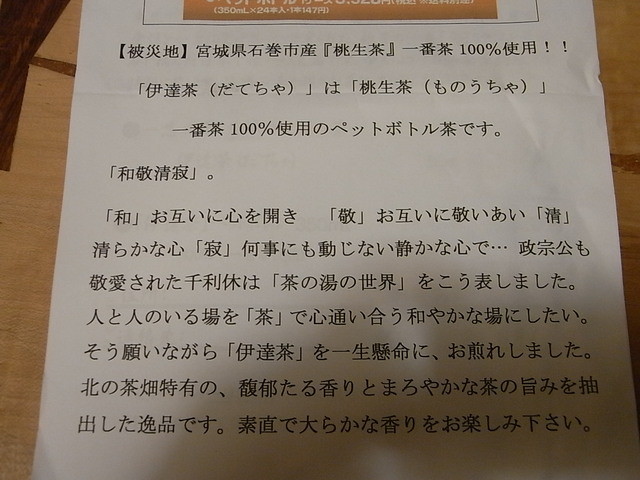 (350mL×24本入・1本147円)
【被災地】宮城県石巻市産『桃生茶』一番茶100%使用！！
「伊達茶（だてちゃ）」は「桃生茶（ものうちゃ）」
一番茶100%使用のペットボトル茶です。
「和敬清寂」。
「和」お互いに心を開き　「敬」お互いに敬いあい「清」
清らかな心「寂」何事にも動じない静かな心で… 政宗公も
敬愛された千利休は「茶の湯の世界」をこう表しました。
人と人のいる場を「茶」で心通い合う和やかな場にしたい。
そう願いながら「伊達茶」を一生懸命に、お煎れしました。
北の茶畑特有の、馥郁たる香りとまろやかな茶の旨みを抽
出した逸品です。素直で大らかな香りをお楽しみ下さい。